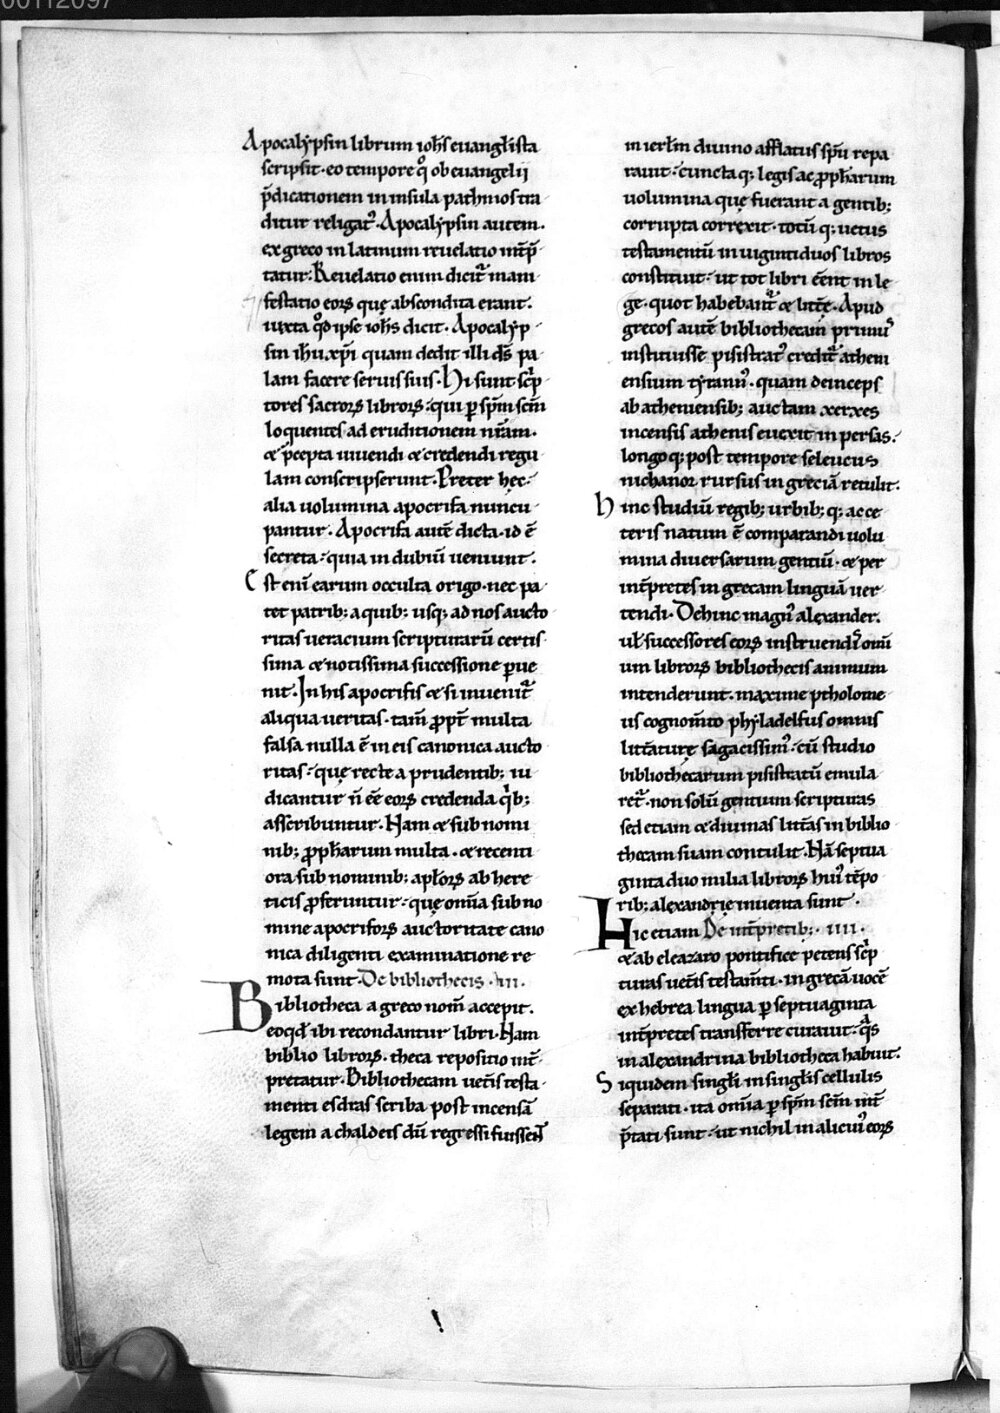 00112097
Apocalypsin librum ioh̅s euangl̅ista
scripsit· eo tempore qͦ ob euangelii
p̅dicationem in insula pathmos tra
ditur religat᷒· Apocalypsin autem·
ex greco in latinum reuelatio int̅p̅
tatur· Reuelatio enim dicit᷑ mani
festatio eoꝝ quę abscondita erant·
iuxta qd̅ ipse ioh̅s dicit· Apocalyp
sin ih̅u xp̅i quam dedit illi d̅s pa
lam facere seruis suis· Hi sunt sc̅p
tores sacroꝝ libroꝝ· qui ꝑ sp̅m sc̅m
loquentes ad eruditionem nr̅am·
& p̅cepta uiuendi & credendi regu
lam conscripserunt· Preter hęc·
alia uolumina apocrifa nuncu
pantur· Apocrifa aute̅ dicta· id e̅
secreta· quia in dubiu̅ ueniunt·
Est eni̅ earum occulta origo· nec pa
tet patrib; a quib; usq; ad nos aucto
ritas ueracium scripturaru̅ certis
sima & notissima successione ꝑue
nit· In his apocrifis & si inuenit᷑
aliqua ueritas· tam̅ ꝓpt̅ multa
falsa nulla e̅ in eis canonica aucto
ritas· quę recte a prudentib; iu
dicantur n̅ ee̅ eoꝝ credenda qͥb;
asscribuntur· Nam & sub nomi
nib; ꝓph̅arum multa· & recenti
ora sub nominib; apl̅oꝝ ab here
ticis ꝓferuntur· quę om̅ia sub no
mine apocrifoꝝ auctoritate cano
nica diligenti examinatione re
mota sunt· De bibliothecis· III·
Bibliotheca a greco nom̅ accepit·
eo qd̅ ibi recondantur libri· Nam
biblio libroꝝ· theca repositio int̅
pretatur· Bibliothecam uet̅is testa
menti esdras scriba post incensa̅
legem a chaldeis du̅ regressi fuissent
in ierl̅m diuino afflatus sp̅u repa
rauit· cuncta q; legis ac ꝓph̅arum
uolumina quę fuerant a gentib;
corrupta correxit· totu̅ q; uetus
testamentu̅ in uiginti duos libros
constituit· ut tot libri ee̅nt in le
ge· quot habebant᷑ & litt̅ę· Apud
grecos aute̅ bibliothecam primu᷒
instituisse pisistrat᷒ credit᷑ atheni
ensium tyrann᷒· quam deinceps
ab atheniensib; auctam xerxes
incensis athenis euexit in persas·
longo q; post tempore seleucus
nichanor rursus in grecia̅ retulit·
Hinc studiu̅ regib; urbib; q; ac ce
teris natum e̅ comparandi uolu
mina diuersarum gentiu̅· & per
int̅pretes in grecam lingua̅ uer
tendi· Dehinc magn᷒ alexander·
ul̅ successores eoꝝ instruendis omni
um libroꝝ bibliothecis animum
intenderunt· maxime ptholome
us cognom̅to phyladelfus omnis
litt̅aturę sagacissim᷒· cu̅ studio
bibliothecarum pisistratu̅ emula
ret᷑· non solu̅ gentium scripturas
sed etiam & diuinas litt̅as in biblio
thecam suam contulit· Na̅ septua
ginta duo milia libroꝝ hui᷒ te̅po
rib; alexandrię inuenta sunt·
Hic etiam De int̅pretib;· IIII·
& ab eleazaro pontifice petens sc̅p
turas uet̅is testam̅ti· in greca̅ uoce̅
ex hebrea lingua ꝑ septuaginta
int̅pretes transferre curauit· qᷓs
in alexandrina bibliotheca habuit·
Siquidem singl̅i in singl̅is cellulis
separati· ita om̅ia ꝑ sp̅m sc̅m int̅
p̅tati sunt· ut nichil in alicui᷒ eoꝝ